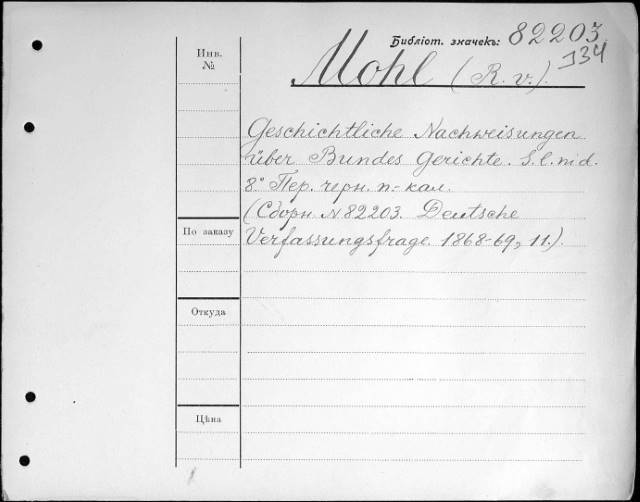 Библіот. значекъ: 82203
J34
Инв.
№
Mohl (R. v.).
Geschichtliche Nachweisungen
über Bundes Gerichte. S. l. n. d.
8° Пер. черн. п.-кал.
(Сборн. N 82203. Deutsche
Verfassungsfrage. 1868-69, 11.)
По заказу
Откуда
Цѣна